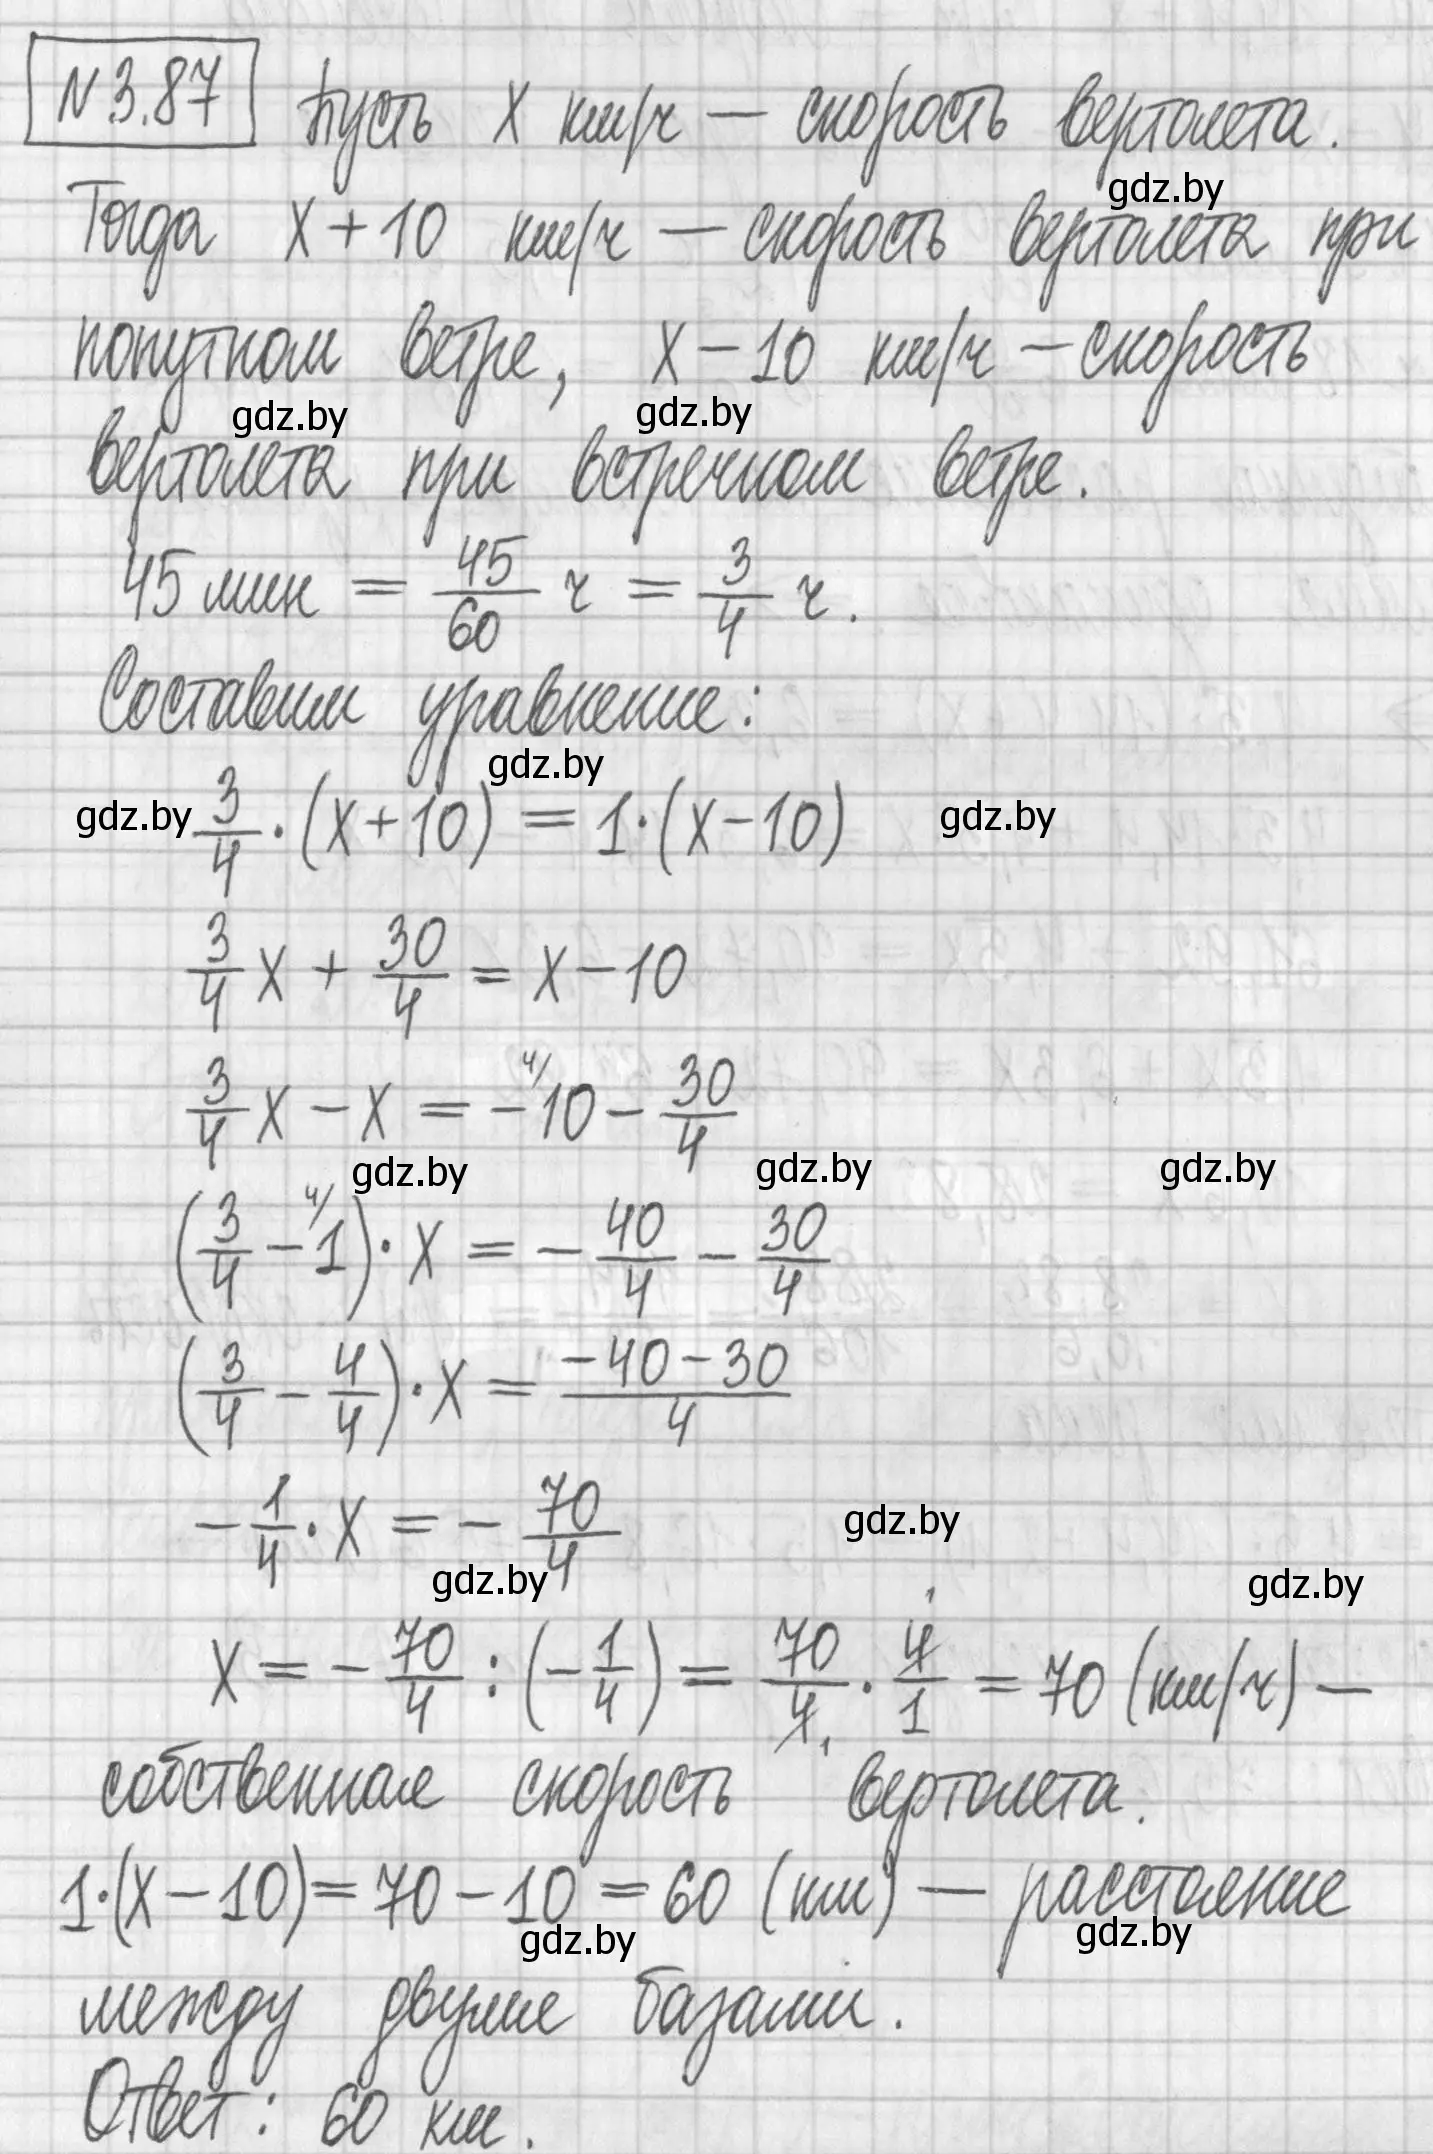 N 3.87 Пусть x км/ч — скорость вертолета.
gdz.by
Тогда x + 10 км/ч — скорость вертолета при
попутном ветре, x − 10 км/ч — скорость
gdz.by gdz.by
вертолета при встречном ветре.
45 мин = 45/60 ч = 3/4 ч.
Составим уравнение:
gdz.by
gdz.by 3/4 · (x + 10) = 1 · (x − 10) gdz.by
3/4 x + 30/4 = x − 10
3/4 x − x = − 4/ 10 − 30/4
gdz.by gdz.by gdz.by
(3/4 − 4/ 1) · x = − 40/4 − 30/4
(3/4 − 4/4) · x = (−40 − 30)/4
− 1/4 · x = − 70/4 gdz.by
gdz.by gdz.by
x = − 70/4 : (− 1/4) = 70/4 1 · 4 1/1 = 70 (км/ч) —
собственная скорость вертолета.
1 · (x − 10) = 70 − 10 = 60 (км) — расстояние
gdz.by gdz.by
между двумя базами.
Ответ: 60 км.